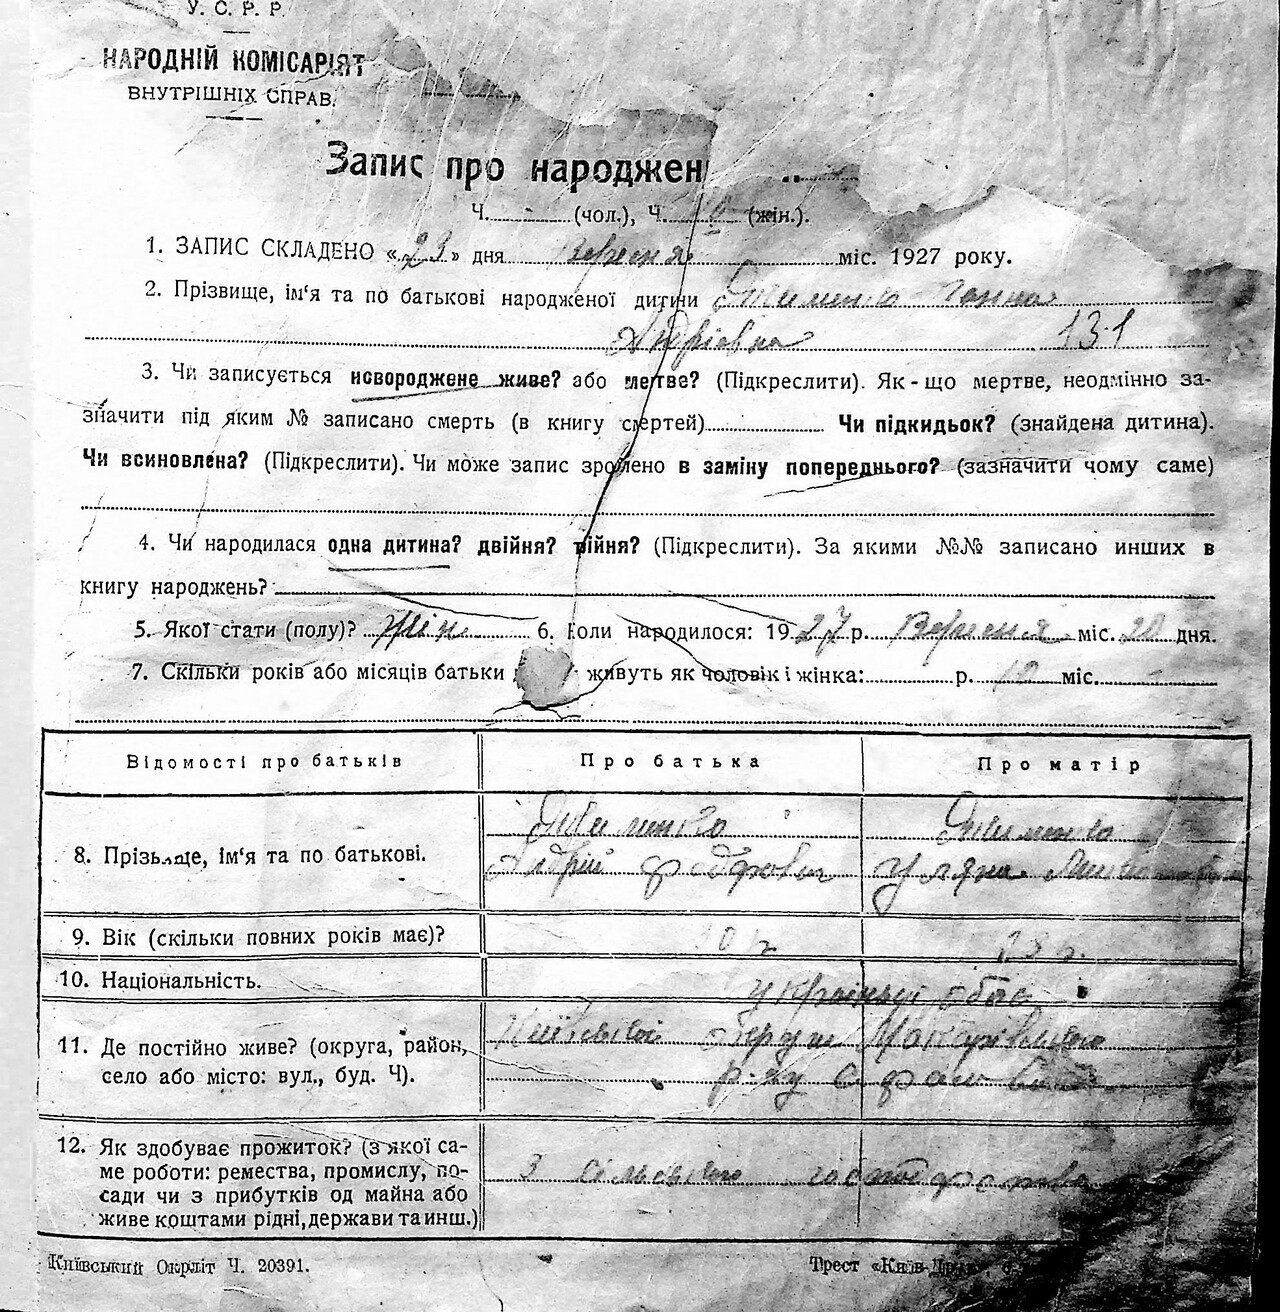 У. С. Р. Р.
НАРОДНІЙ КОМІСАРІЯТ
ВНУТРІШНІХ СПРАВ.
Запис про народжен
Ч. (чол.), Ч. (жін.).
1. ЗАПИС СКЛАДЕНО «29» дня Вересня міс. 1927 року.
2. Прізвище, ім'я та по батькові народженої дитини Ганна
Андріївна 131
3. Чи записується новороджене живе? або мертве? (Підкреслити). Як-що мертве, неодмінно за-
значити під яким № записано смерть (в книгу смертей) Чи підкидьок? (знайдена дитина).
Чи всиновлена? (Підкреслити). Чи може запис зроблено в заміну попереднього? (зазначити чому саме)
4. Чи народилася одна дитина? двійня? трійня? (Підкреслити). За якими №№ записано инших в
книгу народжень?
5. Якої стати (полу)? жін 6. Коли народилося: 1927 р. Вересня міс. 20 дня.
7. Скільки років або місяців батьки живуть як чоловік і жінка: р. 10 міс.
Відомості про батьків Про батька Про матір
8. Прізвище, ім'я та по батькові.
Андрій Уляна
9. Вік (скільки повних років має)?
10. Національність. українці обоє
11. Де постійно живе? (округа, район,
село або місто: вул., буд. Ч).
Київської округи Макарівського
р-ну с.
12. Як здобуває прожиток? (з якої са-
ме роботи: ремества, промислу, по-
сади чи з прибутків од майна або
живе коштами рідні, держави та инш.)
З сільського господарства
Київський Окрліт Ч. 20391. Трест «Київ-Друк»